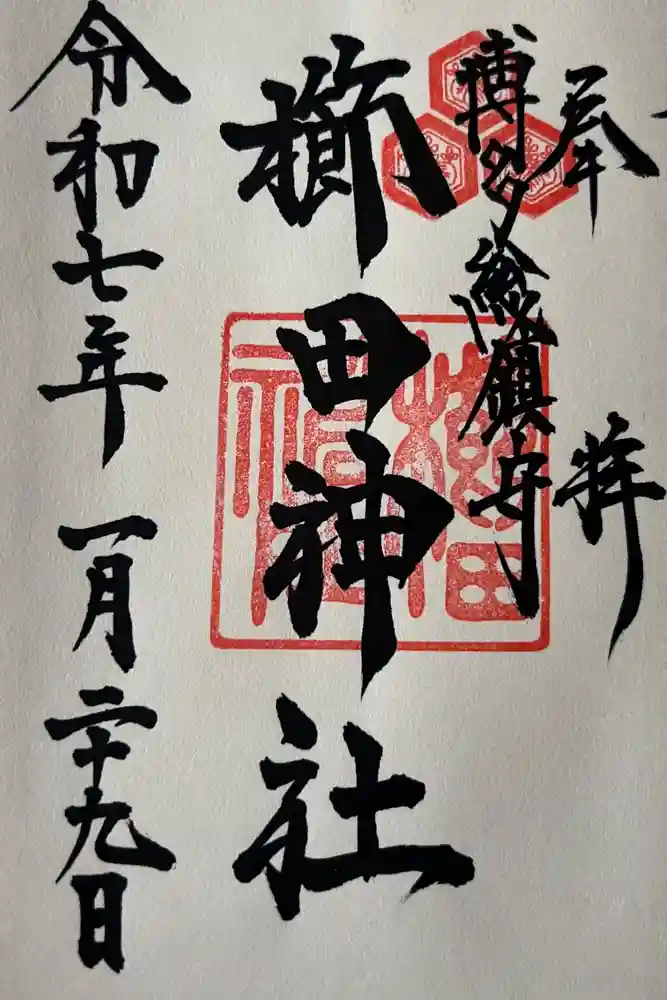 奉拝
博多総鎮守
櫛田神社
令和七年一月二十九日